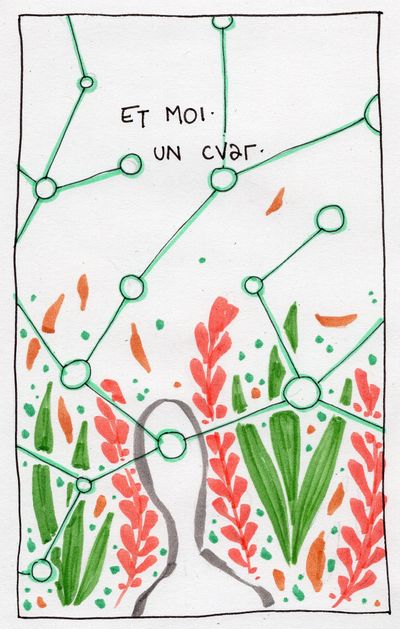 ET MOI.
UN CVƏR.